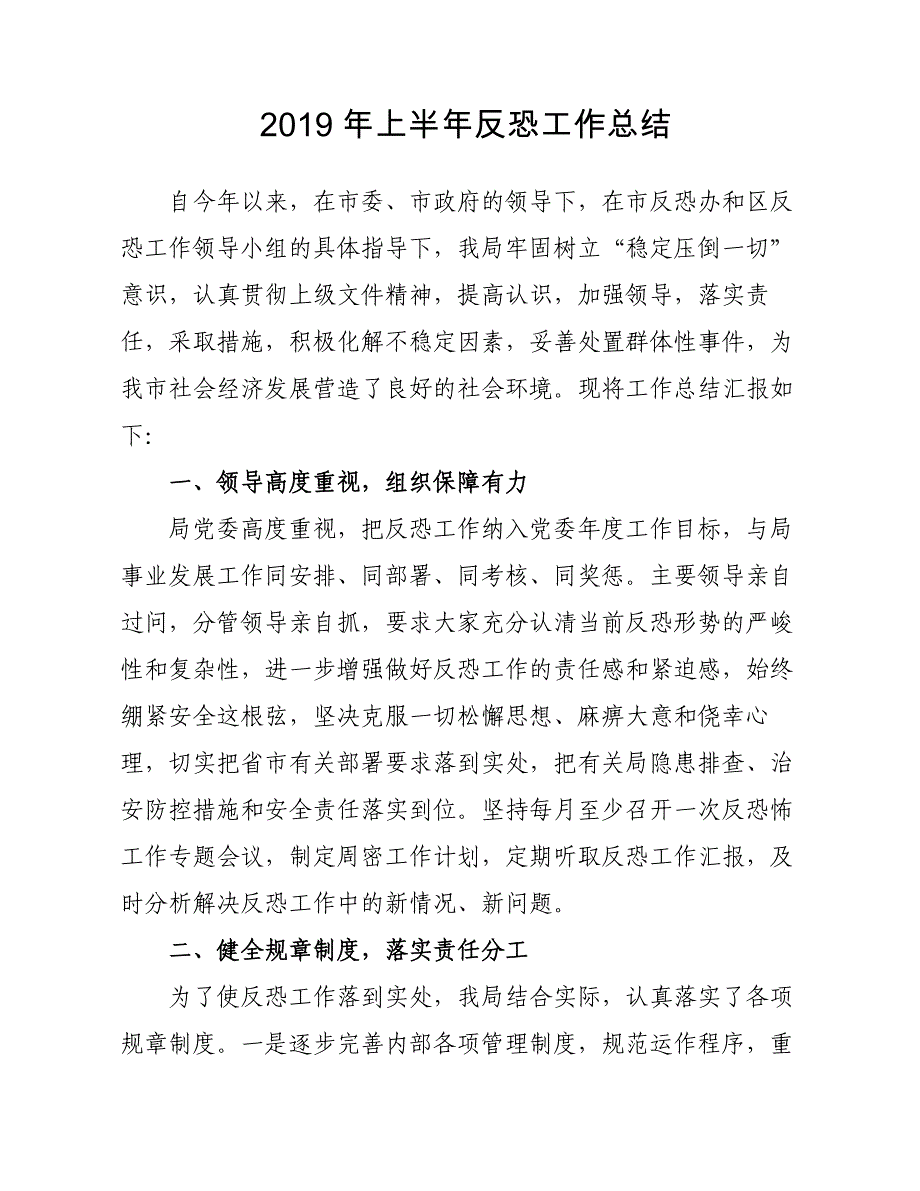 2019 年上半年反恐工作总结
自今年以来，在市委、市政府的领导下，在市反恐办和区反
恐工作领导小组的具体指导下，我局牢固树立“稳定压倒一切”
意识，认真贯彻上级文件精神，提高认识，加强领导，落实责
任，采取措施，积极化解不稳定因素，妥善处置群体性事件，为
我市社会经济发展营造了良好的社会环境。现将工作总结汇报如
下：
一、领导高度重视，组织保障有力
局党委高度重视，把反恐工作纳入党委年度工作目标，与局
事业发展工作同安排、同部署、同考核、同奖惩。主要领导亲自
过问，分管领导亲自抓，要求大家充分认清当前反恐形势的严峻
性和复杂性，进一步增强做好反恐工作的责任感和紧迫感，始终
绷紧安全这根弦，坚决克服一切松懈思想、麻痹大意和侥幸心
理，切实把省市有关部署要求落到实处，把有关局隐患排查、治
安防控措施和安全责任落实到位。坚持每月至少召开一次反恐怖
工作专题会议，制定周密工作计划，定期听取反恐工作汇报，及
时分析解决反恐工作中的新情况、新问题。
二、健全规章制度，落实责任分工
为了使反恐工作落到实处，我局结合实际，认真落实了各项
规章制度。一是逐步完善内部各项管理制度，规范运作程序，重